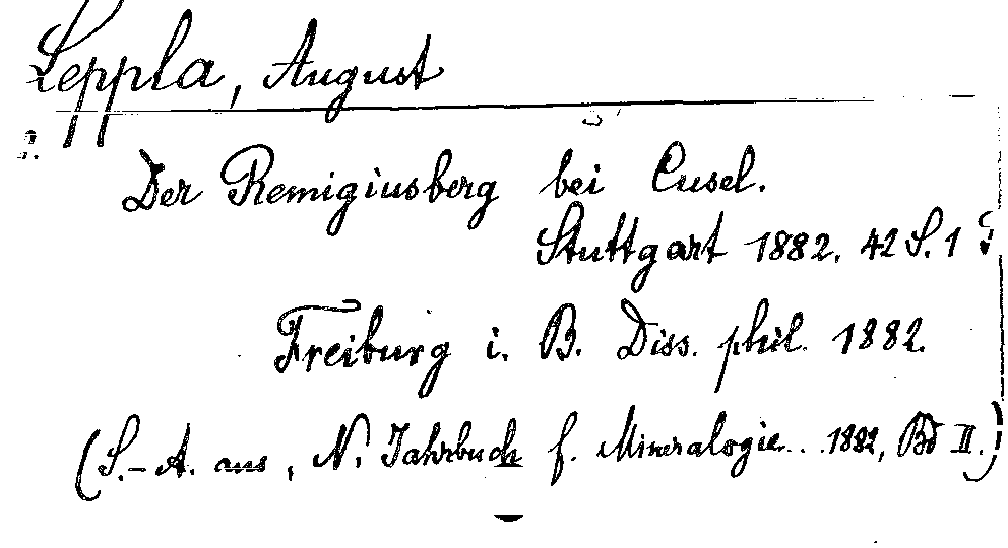 Leppla, August
Der Remigiusberg bei Cusel.
Stuttgart 1882. 42 S. 1
Freiburg i. B. Diss. phil. 1882.
(S.-A. aus, N. Jahrbuch f. Mineralogie... 1882, Bd II.)